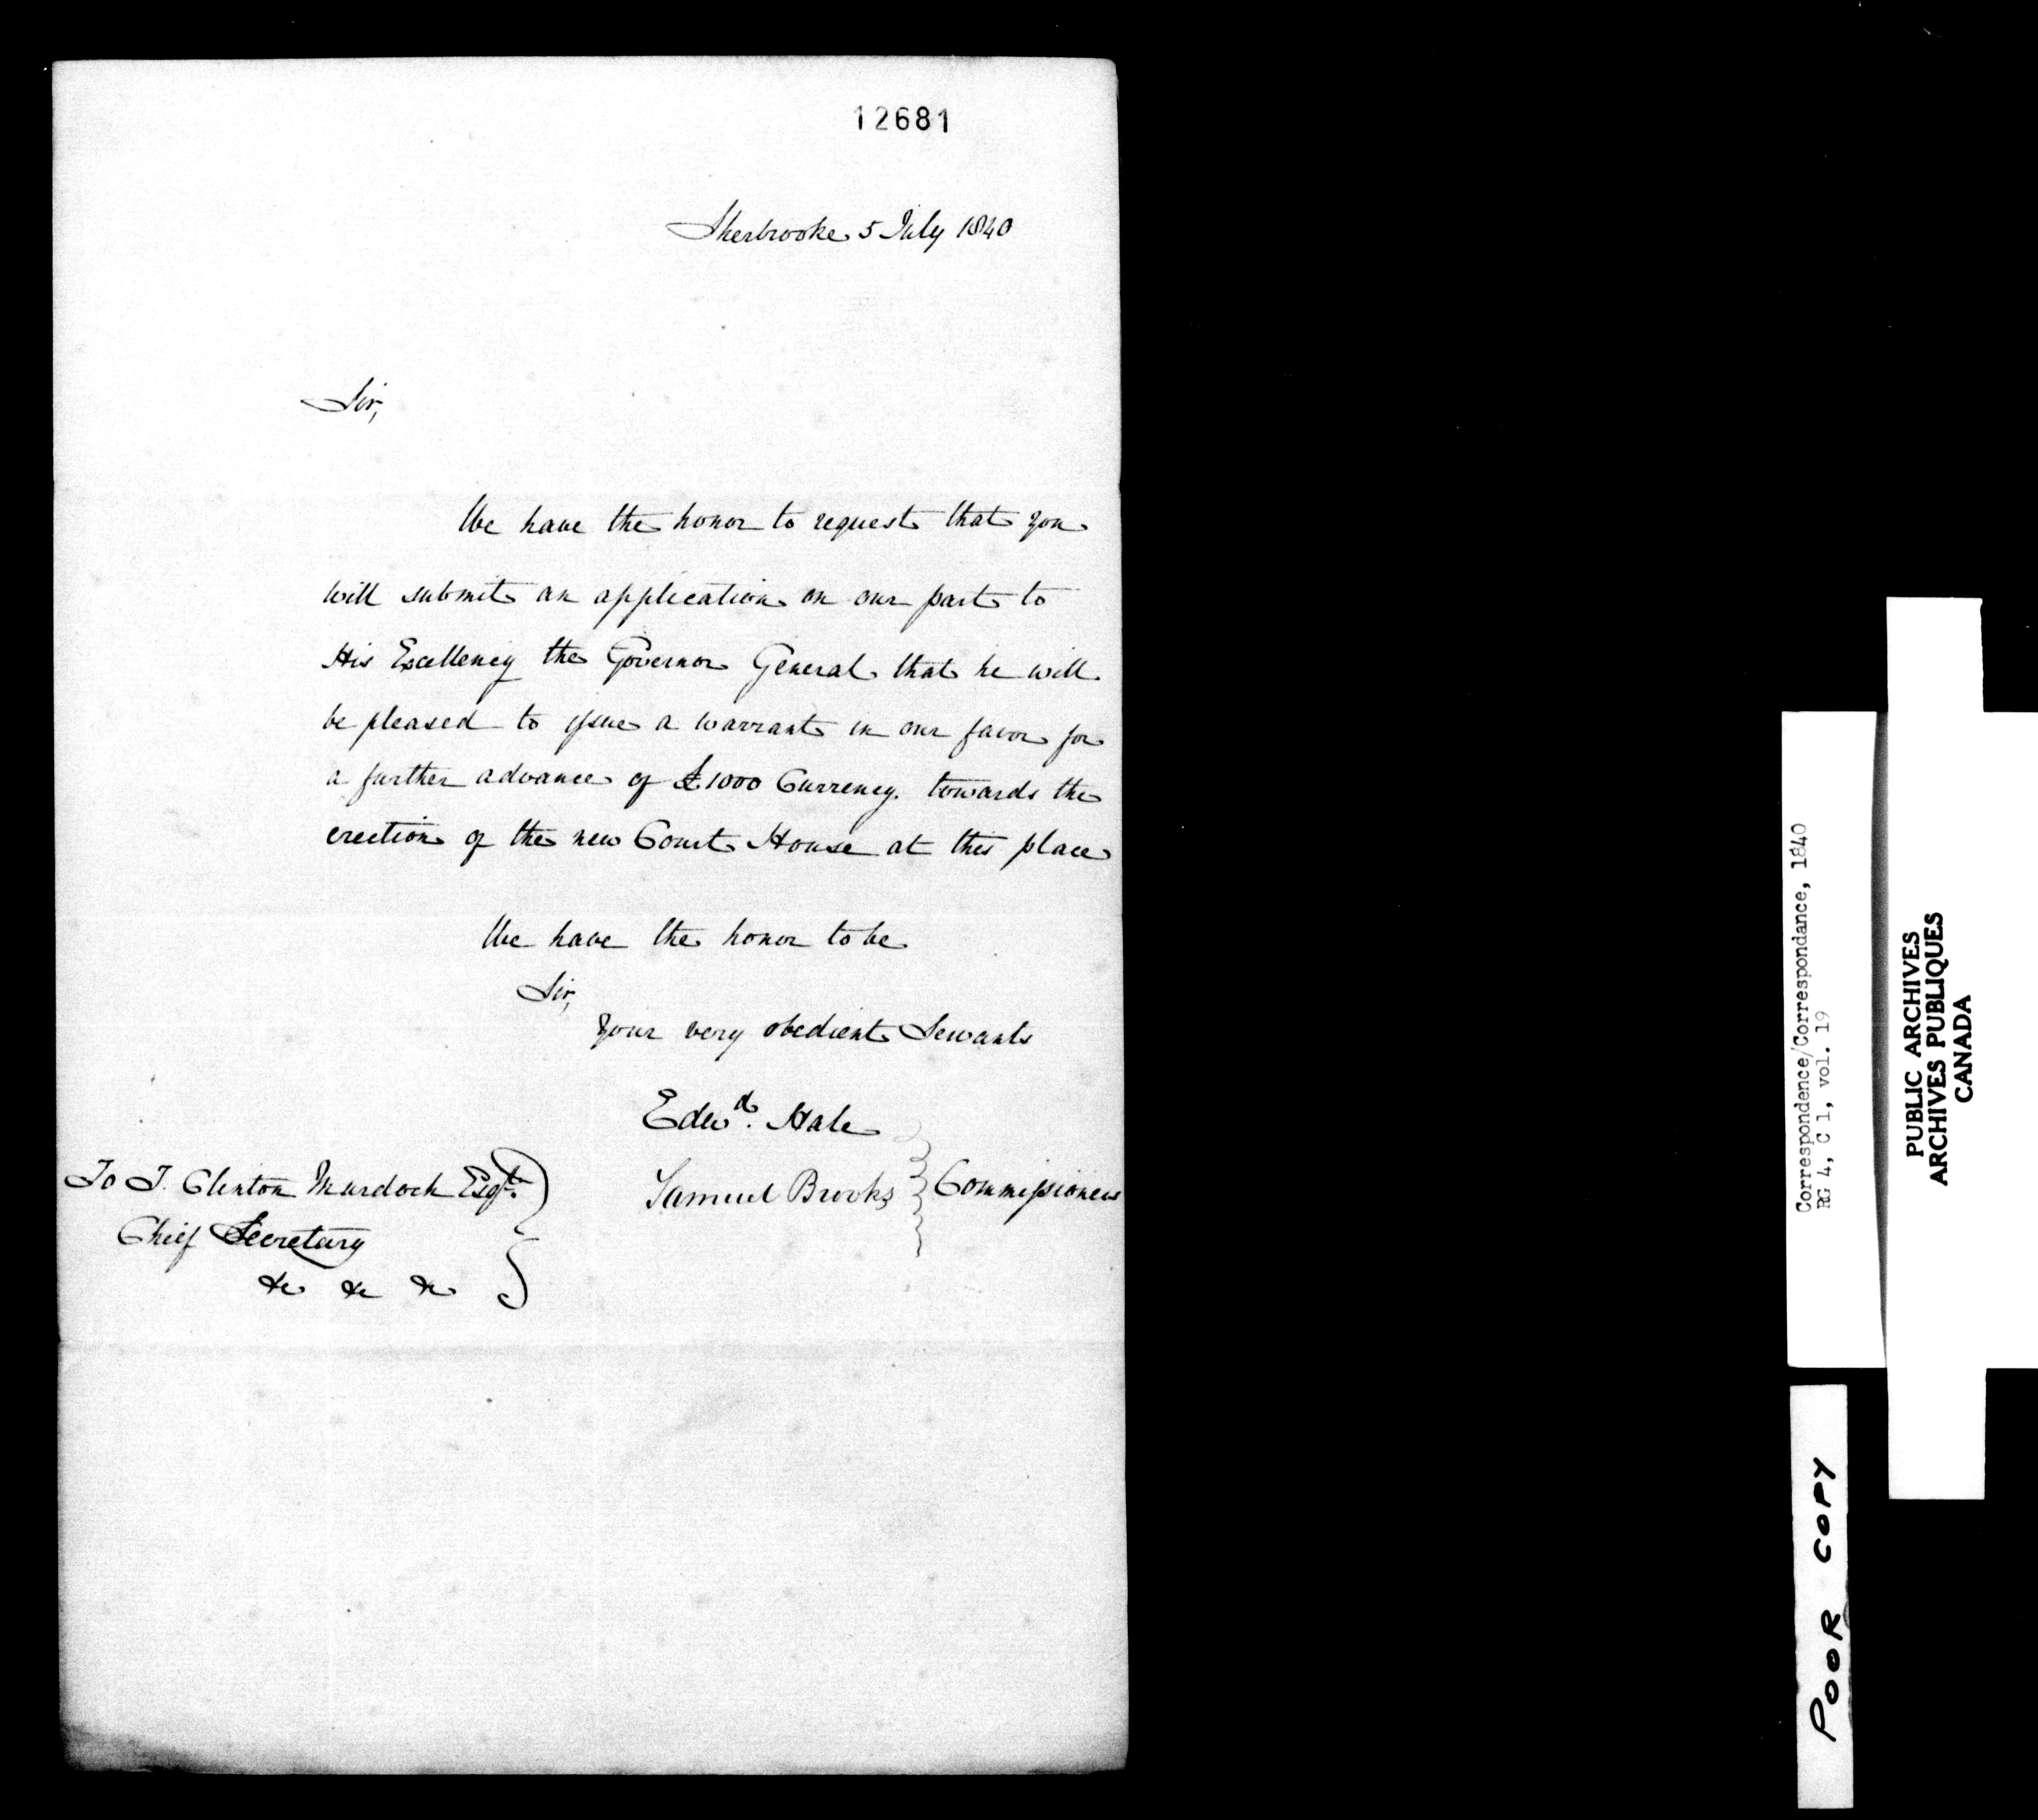 12681
Sherbrooke 5 July 1840
Sir,
We have the honor to request that you
will submit an application on our part to
His Excellency the Governor General that he will
be pleased to issue a warrant in our favor for
a further advance of £1000 Currency. towards the
erection of the new Court House at this place
We have the honor to be
Sir,
Your very obedient Servants
Edwd. Hale
Samuel Brooks } Commissioners
To T. Clinton Murdoch Esqre.
Chief Secretary
&c &c &c
Correspondence/Correspondance, 1840
RG 4, C 1, vol. 19
PUBLIC ARCHIVES
ARCHIVES PUBLIQUES
CANADA
POOR COPY